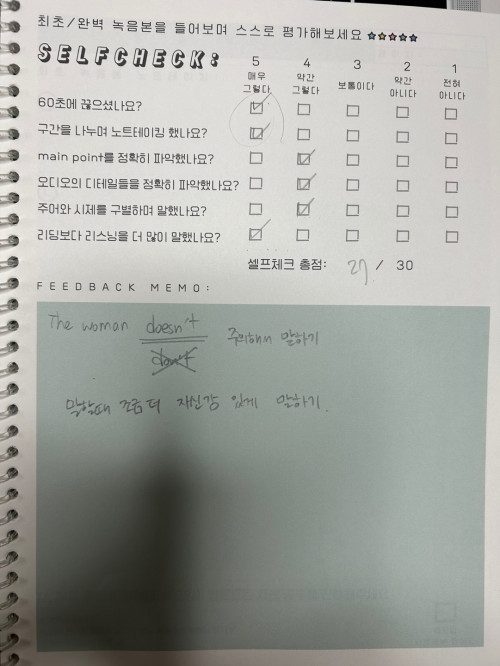 최초/완벽 녹음본을 들어보며 스스로 평가해보세요
SELFCHECK:
5 4 3 2 1
매우 그렇다 약간 그렇다 보통이다 약간 아니다 전혀 아니다
60초에 끊으셨나요?
구간을 나누며 노트테이킹 했나요?
main point를 정확히 파악했나요?
오디오의 디테일들을 정확히 파악했나요?
주어와 시제를 구별하며 말했나요?
리딩보다 리스닝을 더 많이 말했나요?
셀프체크 총점: 27 / 30
FEEDBACK MEMO:
The woman doesn't 주의해서 말하기
don't
말할때 조금 더 자신감 있게 말하기.